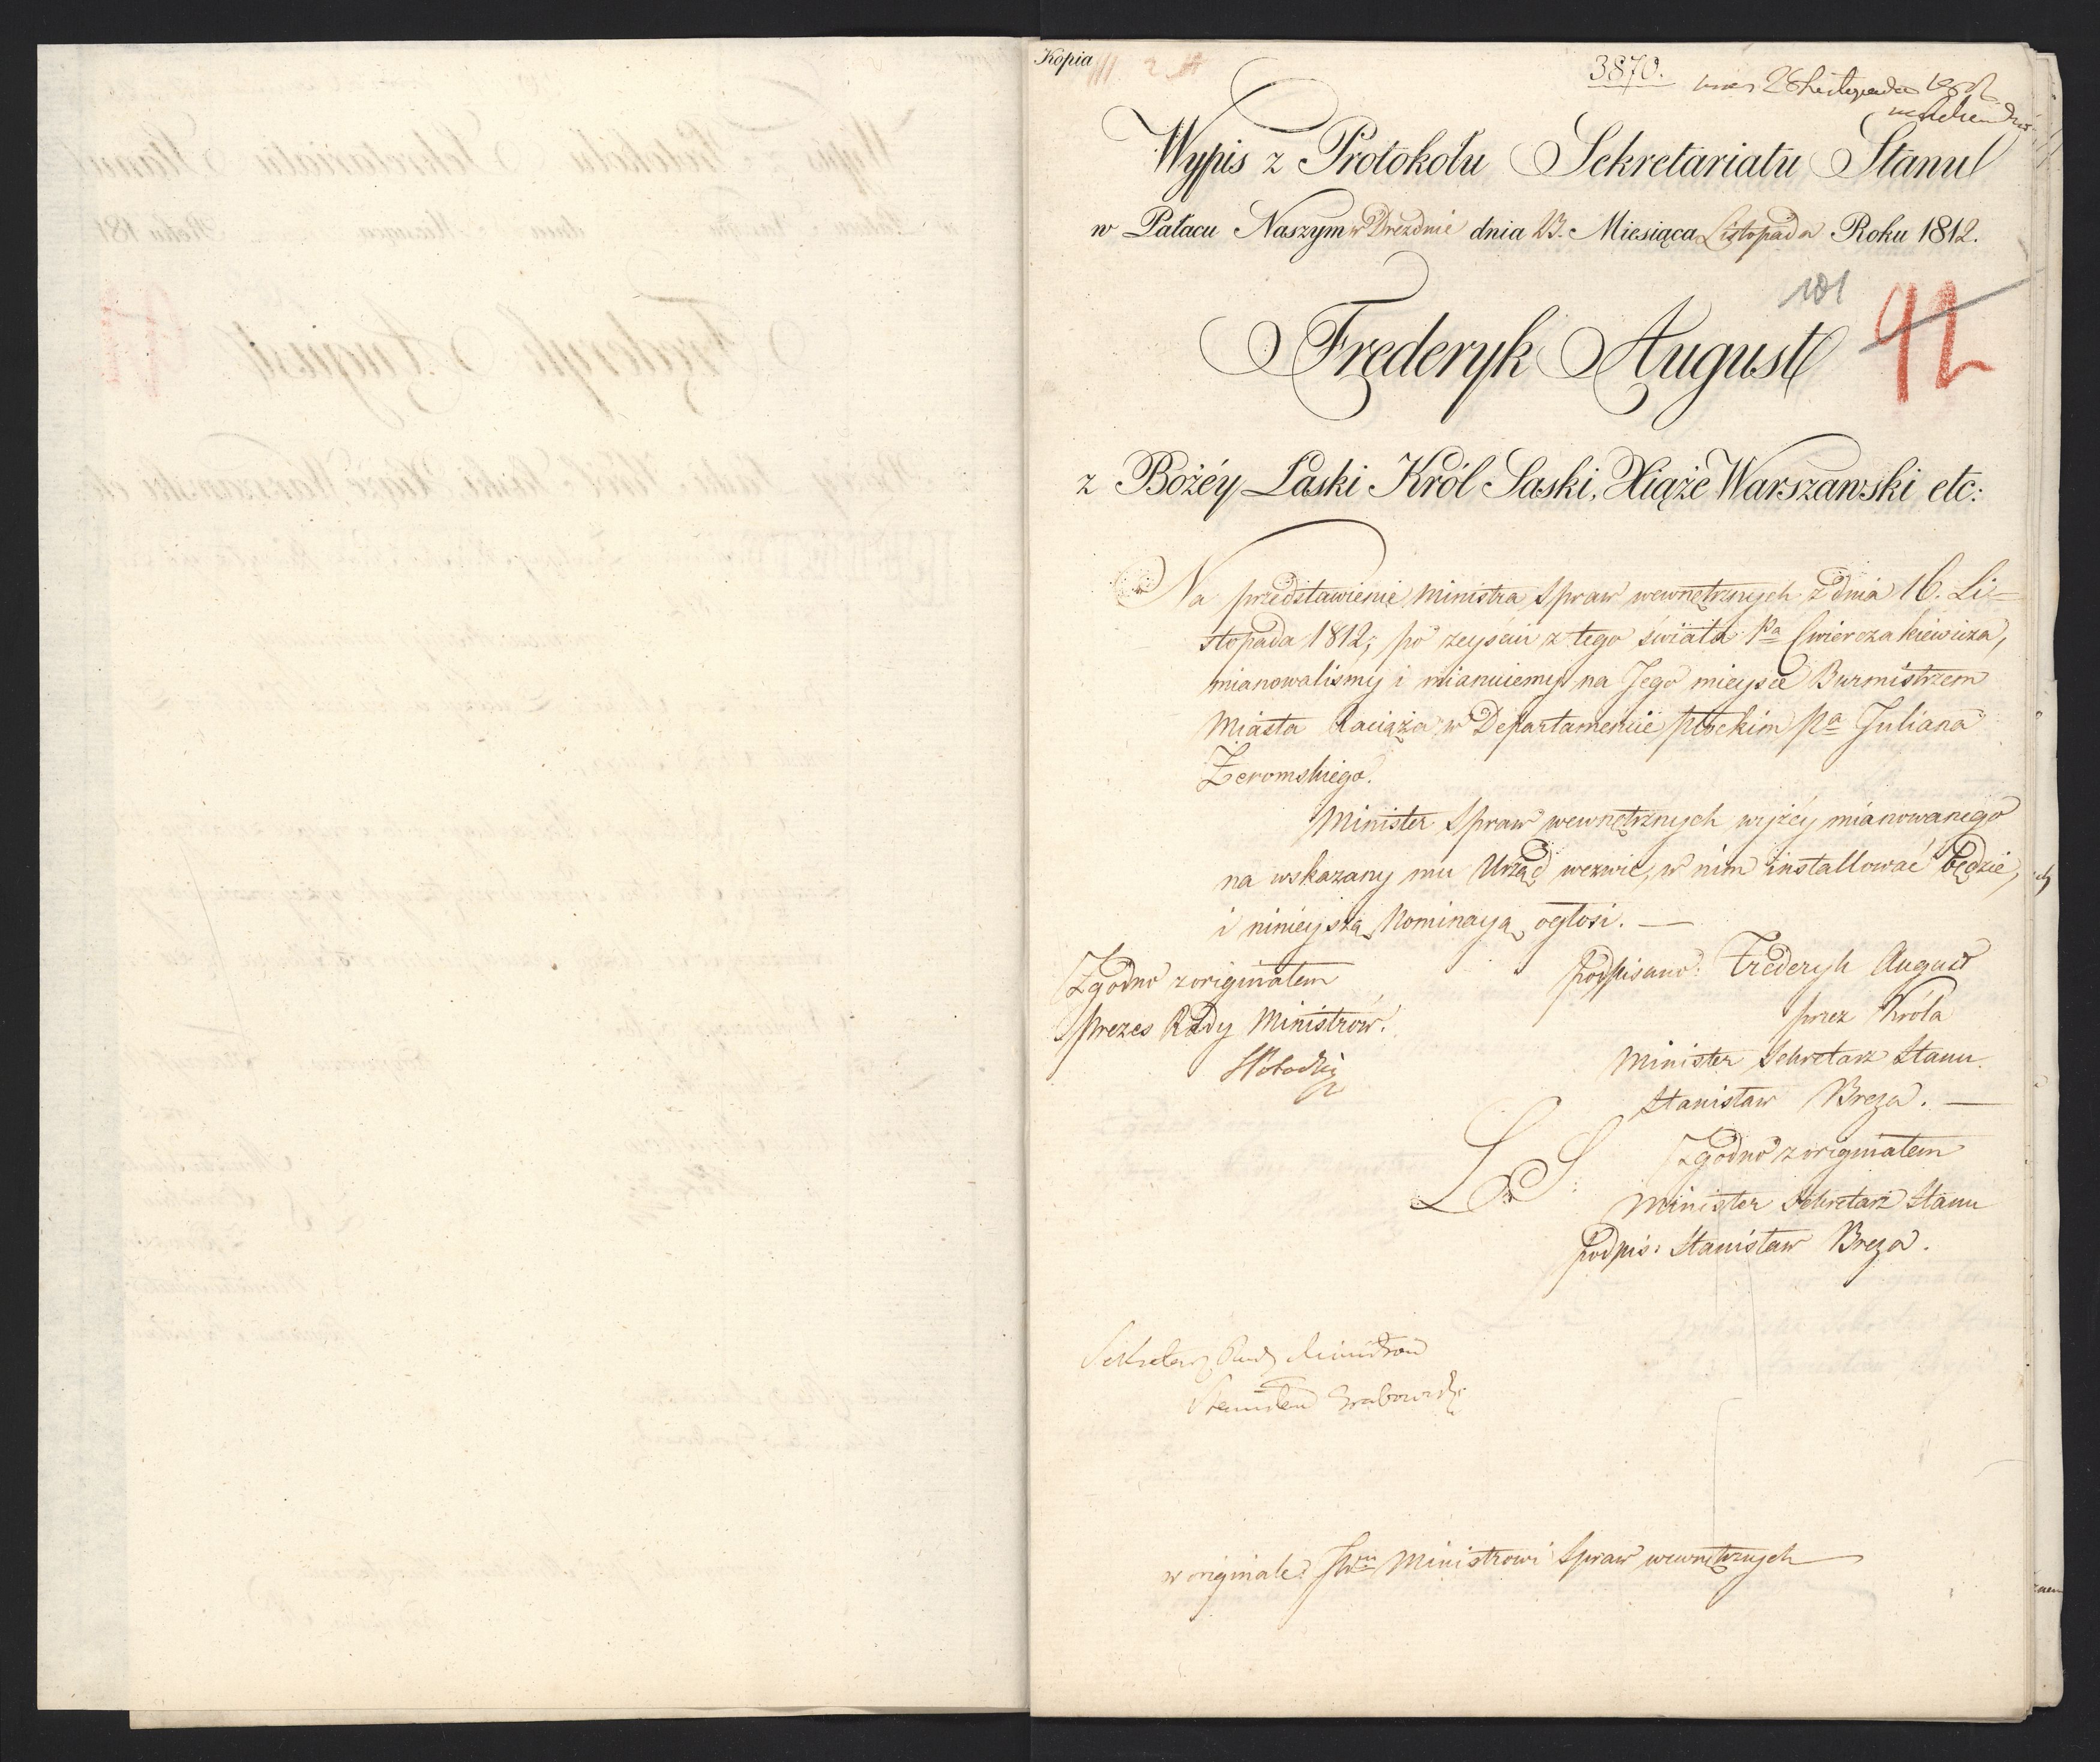 Kopia
3870.
Wypis z Protokołu Sekretariatu Stanu
w Pałacu Naszym w Dreznie dnia 23. Miesiąca Listopada Roku 1812.
101
92
Frederyk August
z Bożéy Łaski Król Saski, Xiąże Warszawski etc:
Na przedstawienie Ministra Spraw wewnętrznych z dnia 16. Li-
stopada 1812, po zeyściu z tego świata Pa Cwierczakiewicza,
mianowaliśmy i mianuiemy na Jego mieysce Burmistrzem
Miasta Raciąża w Departamencie płockim Pa Juliana
Żeromskiego.
Minister Spraw wewnętrznych wyżéy mianowanego
na wskazany mu Urząd wezwie, w nim installować będzie,
i ninieyszą Nominacyą ogłosi. —
Zgodno z originałem
Prezes Rady Ministrów.
podpisano: Frederyk August
przez Króla
Minister Sekretarz Stanu.
Stanisław Breza. —
LS
Zgodno z originałem
Minister Sekretarz Stanu
podpis: Stanisław Breza.
Sekretarz Rady Ministrów
Stanisław Grabowski
w originale: JWmu Ministrowi Spraw wewnętrznych